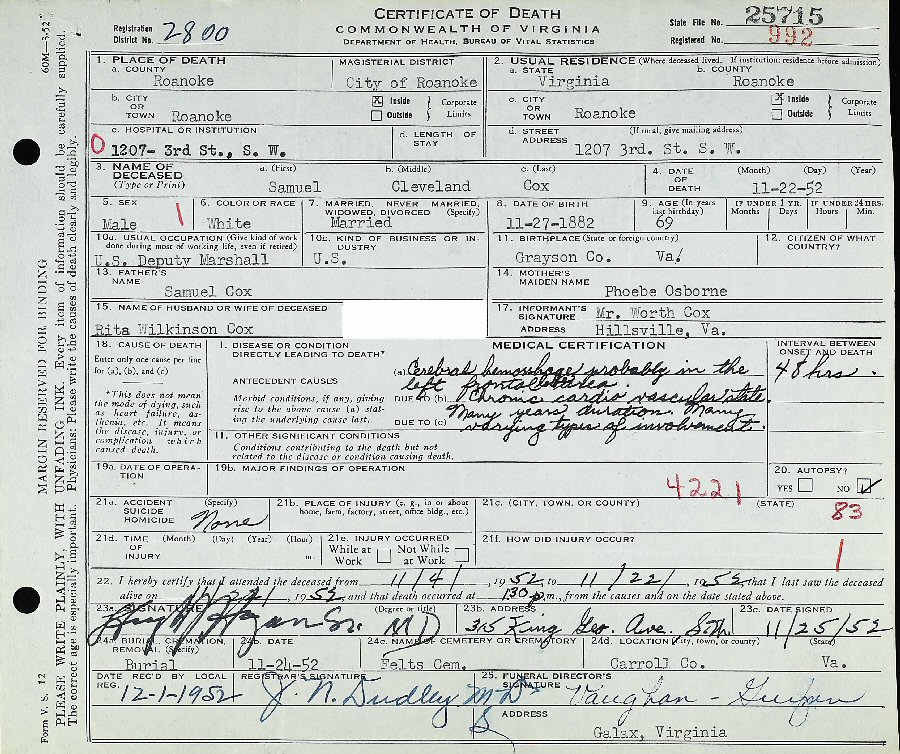 CERTIFICATE OF DEATH
COMMONWEALTH OF VIRGINIA
DEPARTMENT OF HEALTH, BUREAU OF VITAL STATISTICS
Registration District No. 2800
State File No. 25715
Registered No. 992
60M—3-52
MARGIN RESERVED FOR BINDING
PLEASE WRITE PLAINLY, WITH UNFADING INK. Every item of information should be carefully supplied.
The correct age is especially important. Physicians: Please write the causes of death clearly and legibly.
Form V. S. 12
1. PLACE OF DEATH
a. COUNTY
Roanoke
MAGISTERIAL DISTRICT
City of Roanoke
2. USUAL RESIDENCE (Where deceased lived. If institution: residence before admission)
a. STATE
Virginia
b. COUNTY
Roanoke
b. CITY OR TOWN Roanoke
X Inside
Outside
Corporate Limits
c. CITY OR TOWN Roanoke
X Inside
Outside
Corporate Limits
c. HOSPITAL OR INSTITUTION
0 1207- 3rd St., S. W.
d. LENGTH OF STAY
d. STREET ADDRESS (If rural, give mailing address)
1207 3rd. St. S. W.
3. NAME OF DECEASED (Type or Print)
a. (First)
Samuel
b. (Middle)
Cleveland
c. (Last)
Cox
4. DATE OF DEATH (Month) (Day) (Year)
11-22-52
5. SEX
Male
1
6. COLOR OR RACE
White
7. MARRIED, NEVER MARRIED, WIDOWED, DIVORCED (Specify)
Married
8. DATE OF BIRTH
11-27-1882
9. AGE (In years last birthday)
69
IF UNDER 1 YR. Months Days
IF UNDER 24 HRS. Hours Min.
10a. USUAL OCCUPATION (Give kind of work done during most of working life, even if retired)
U.S. Deputy Marshall
10b. KIND OF BUSINESS OR INDUSTRY
U.S.
11. BIRTHPLACE (State or foreign country)
Grayson Co. Va.
12. CITIZEN OF WHAT COUNTRY?
13. FATHER'S NAME
Samuel Cox
14. MOTHER'S MAIDEN NAME
Phoebe Osborne
15. NAME OF HUSBAND OR WIFE OF DECEASED
Rita Wilkinson Cox
17. INFORMANT'S SIGNATURE Mr. Worth Cox
ADDRESS Hillsville, Va.
18. CAUSE OF DEATH
Enter only one cause per line for (a), (b), and (c)
*This does not mean the mode of dying, such as heart failure, asthenia, etc. It means the disease, injury, or complication which caused death.
MEDICAL CERTIFICATION
INTERVAL BETWEEN ONSET AND DEATH
I. DISEASE OR CONDITION DIRECTLY LEADING TO DEATH*
(a) Cerebral hemorrhage probably in the
left frontal area.
48 hrs.
ANTECEDENT CAUSES
Morbid conditions, if any, giving rise to the above cause (a) stating the underlying cause last.
DUE TO (b) Chronic cardio vascular state.
Many years duration. Many
DUE TO (c) varying types of involvement.
11. OTHER SIGNIFICANT CONDITIONS
Conditions contributing to the death but not related to the disease or condition causing death.
19a. DATE OF OPERATION
19b. MAJOR FINDINGS OF OPERATION
4221
20. AUTOPSY?
YES NO ✓
21a. ACCIDENT SUICIDE HOMICIDE (Specify)
None
21b. PLACE OF INJURY (e. g., in or about home, farm, factory, street, office bldg., etc.)
21c. (CITY, TOWN, OR COUNTY) (STATE)
83
21d. TIME OF INJURY (Month) (Day) (Year) (Hour) m.
21e. INJURY OCCURRED
While at Work Not While at Work
21f. HOW DID INJURY OCCUR?
1
22. I hereby certify that I attended the deceased from 11/4, 1952, to 11/22, 1952, that I last saw the deceased
alive on 11/22, 1952, and that death occurred at 130 p.m., from the causes and on the date stated above.
23a. SIGNATURE (Degree or title)
Sr. MD
23b. ADDRESS
315 King Geo. Ave. S.W.
23c. DATE SIGNED
11/25/52
24a. BURIAL, CREMATION, REMOVAL (Specify)
Burial
24b. DATE
11-24-52
24c. NAME OF CEMETERY OR CREMATORY
Felts Cem.
24d. LOCATION (City, town, or county) (State)
Carroll Co. Va.
DATE REC'D BY LOCAL REG. 12-1-1952
REGISTRAR'S SIGNATURE
J. N. Dudley MD
25. FUNERAL DIRECTOR'S SIGNATURE Vaughan -
ADDRESS
Galax, Virginia